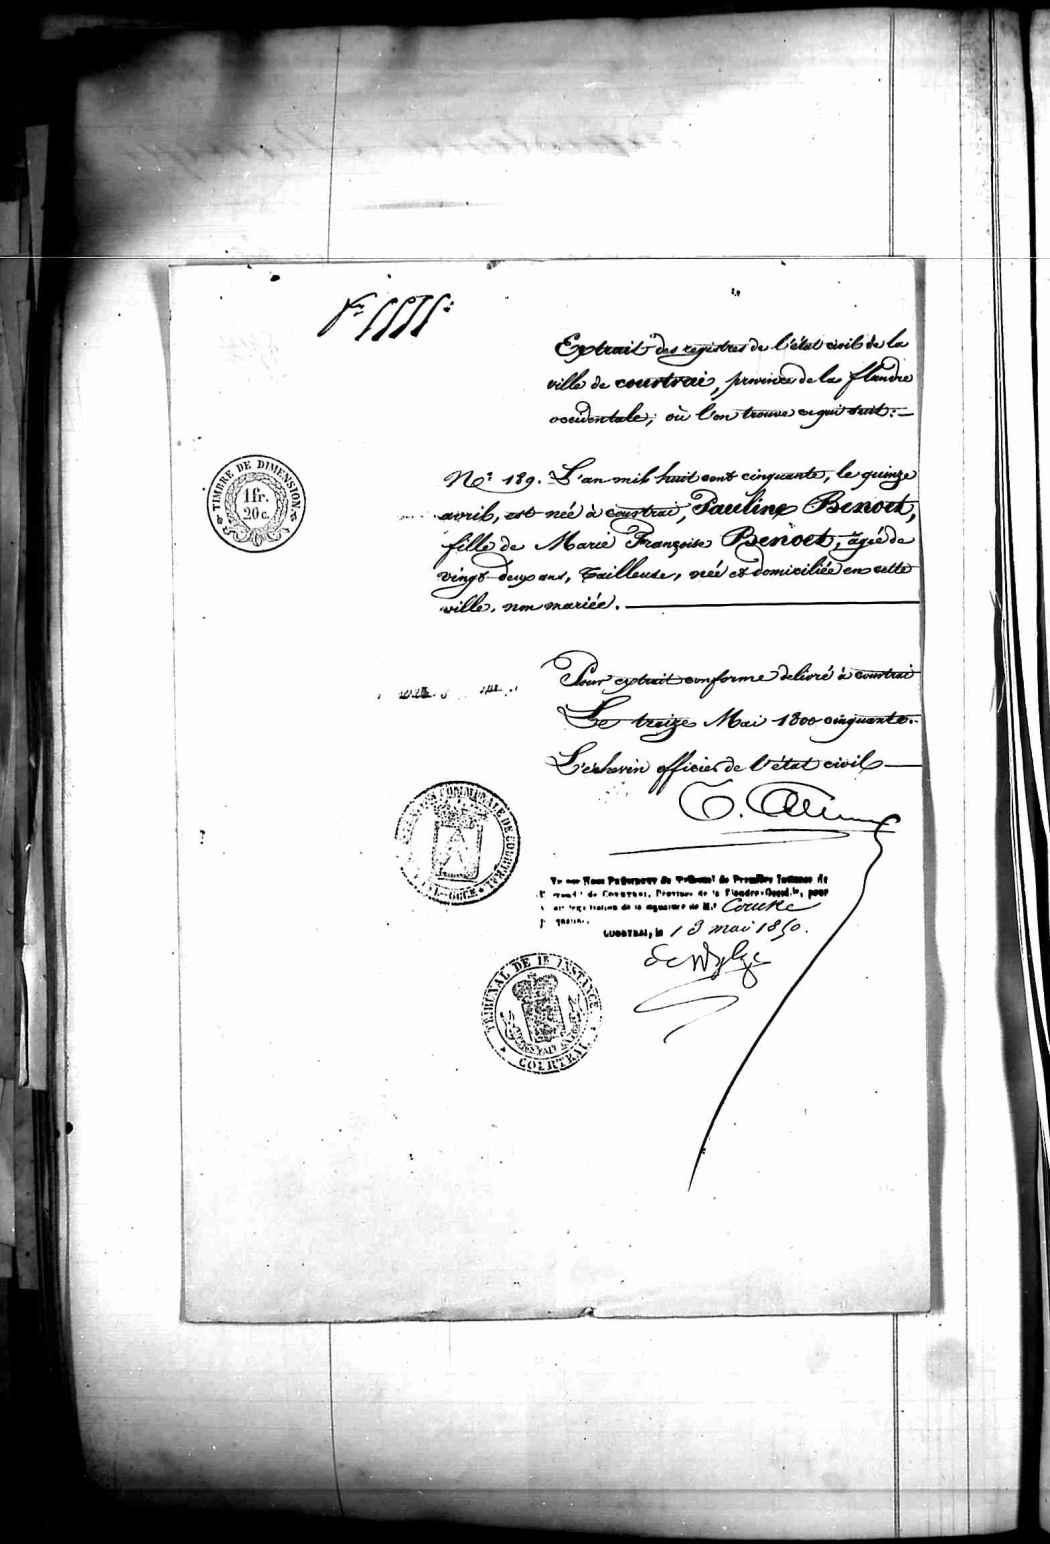 Extrait des registres de l'état civil de la
ville de courtrai, province de la flandre
occidentale, où l'on trouve ce qui suit:
TIMBRE DE DIMENSION
1 fr.
20 c.
No. 189. L'an mil huit cent cinquante, le quinze
avril, est née à courtrai, Pauline Benoet,
fille de Marie Françoise Benoet, âgée de
vingt-deux ans, Tailleuse, née et domiciliée en cette
ville, non mariée.
Pour extrait conforme délivré à courtrai
Le treize Mai 1800 cinquante.
L'échevin officier de l'état civil
COMMUNALE DE COURTRAI
Vu par Nous Président du Tribunal de Première Instance de
Courtrai, Province de la Flandre-Occid.le, pour
légalisation de la signature de Mr.
COURTRAI, le 13 mai 1850.
TRIBUNAL DE 1E INSTANCE
COURTRAI